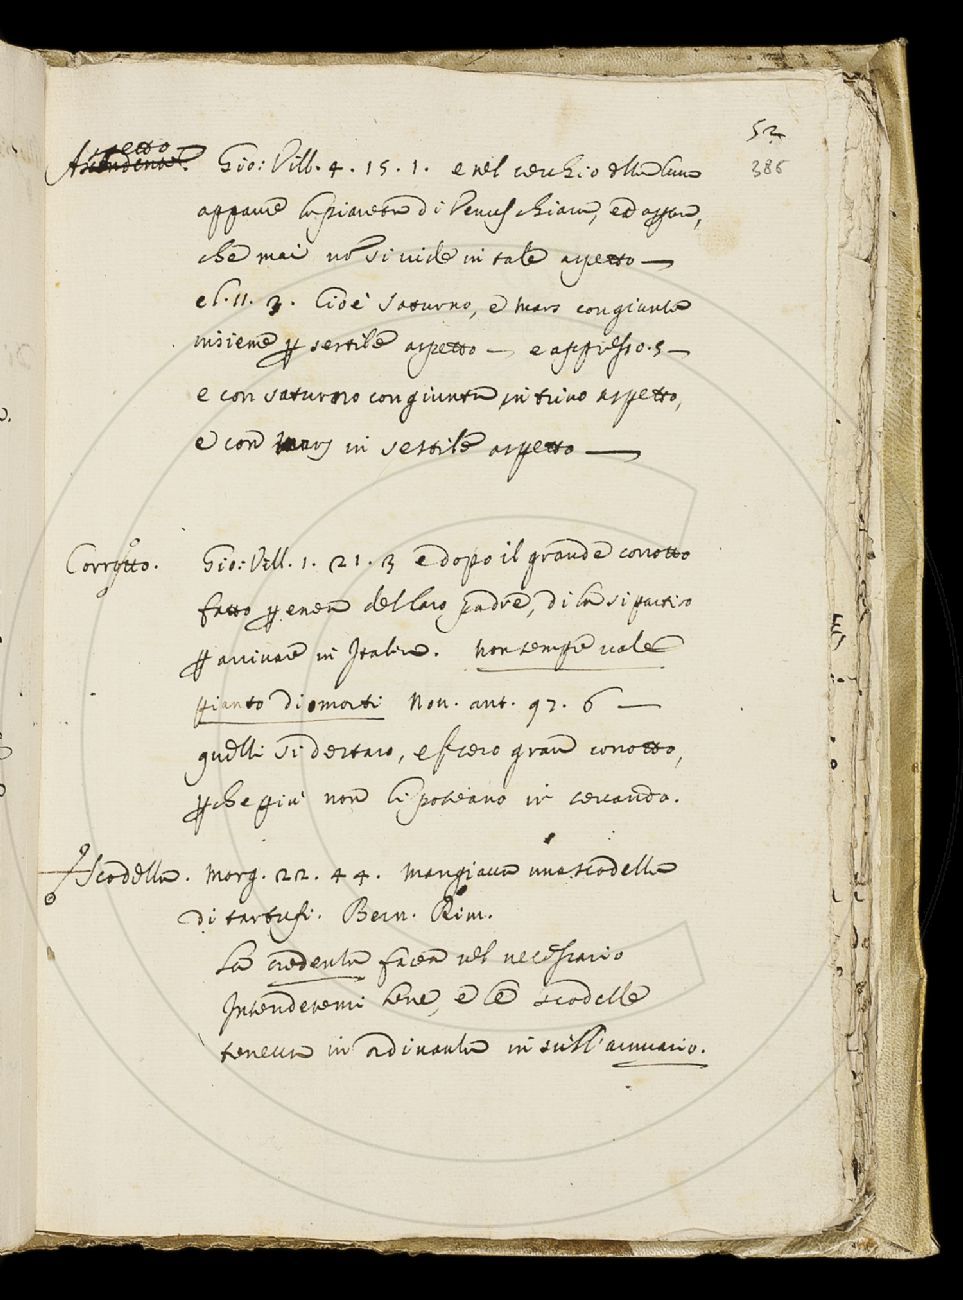 52
386
Aspetto
Ascendente. Gio: Vill. 4. 15. 1. e nel cerchio della luna
apparve la pianeta di Venus chiara, ed aperta,
che mai nō si vide in tale aspetto —
el. 11. 3. Cioè Saturno, e Mars congiunta
insieme ꝑ sestile aspetto — e appresso. 5 —
e con saturno congiunta in trino aspetto,
e con Mars in sestile aspetto —
Corrotto. Gio: Vill. 1. 21. 3 e dopo il grande corrotto
fatto ꝑ Enea del suo padre, di là si partiro
ꝑ arrivare in Italia. Non sempre vale
pianto di morti Nov. ant. 97. 6 —
quelli si destaro, e fecero gran corrotto,
ꝑche più non li poteano in cercando.
Scodella. Morg. 22. 44. Mangiava una scodella
di tartufi. Bern. Rim.
La credenza facea nel necessario
Intendetemi bene, e le scodelle
teneva in ordinanza in sull' armario.